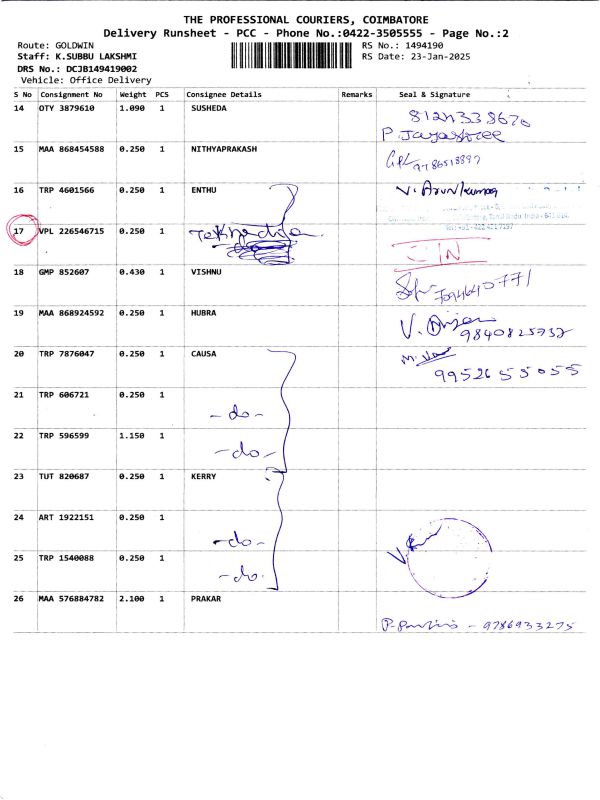 THE PROFESSIONAL COURIERS, COIMBATORE
Delivery Runsheet - PCC - Phone No.:0422-3505555 - Page No.:2
Route: GOLDWIN
RS No.: 1494190
Staff: K.SUBBU LAKSHMI
RS Date: 23-Jan-2025
DRS No.: DCJB149419002
Vehicle: Office Delivery
S No Consignment No Weight PCS Consignee Details Remarks Seal & Signature
14 OTY 3879610 1.090 1 SUSHEDA
P Jayashree
15 MAA 868454588 0.250 1 NITHYAPRAKASH
16 TRP 4601566 0.250 1 ENTHU V. Arun kumar
17 VPL 226546715 0.250 1
18 GMP 852607 0.430 1 VISHNU
19 MAA 868924592 0.250 1 HUBRA
20 TRP 7876047 0.250 1 CAUSA
9952655055
21 TRP 606721 0.250 1
-do-
22 TRP 596599 1.150 1
-do-
23 TUT 820687 0.250 1 KERRY
24 ART 1922151 0.250 1
-do-
25 TRP 1540088 0.250 1
-do-
26 MAA 576884782 2.100 1 PRAKAR
9786933275